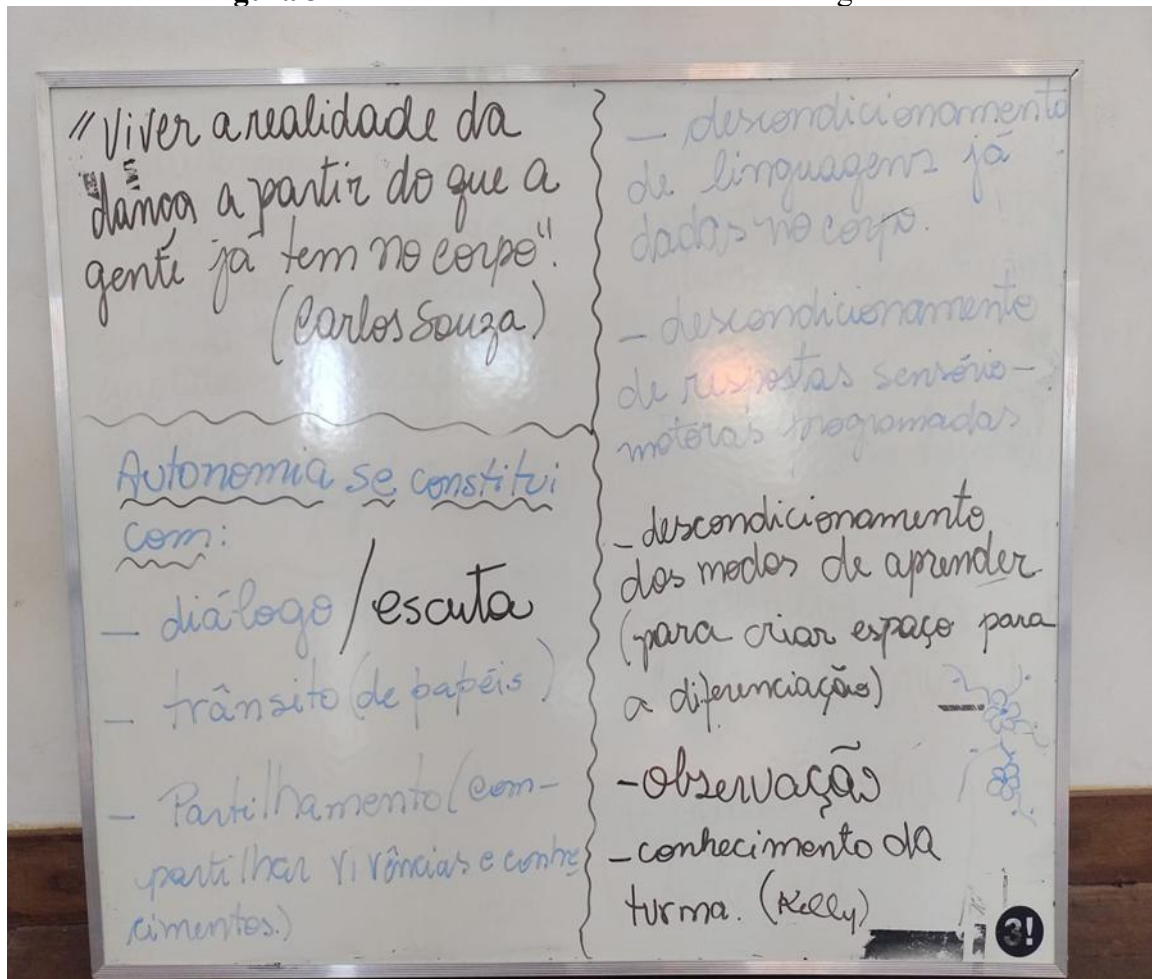 "Viver a realidade da
dança a partir do que a
gente já tem no corpo".
(Carlos Souza)
Autonomia se constitui
com:
— diálogo / escuta
— trânsito (de papéis)
— Partilhamento (com-
partilhar vivências e conhe
cimentos.)
— descondicionamento
de linguagens já
dadas no corpo.
— descondicionamento
de respostas sensório-
motoras programadas
- descondicionamento
dos modos de aprender
(para criar espaço para
a diferenciação)
- observação
- conhecimento da
turma. (Kelly)
3!